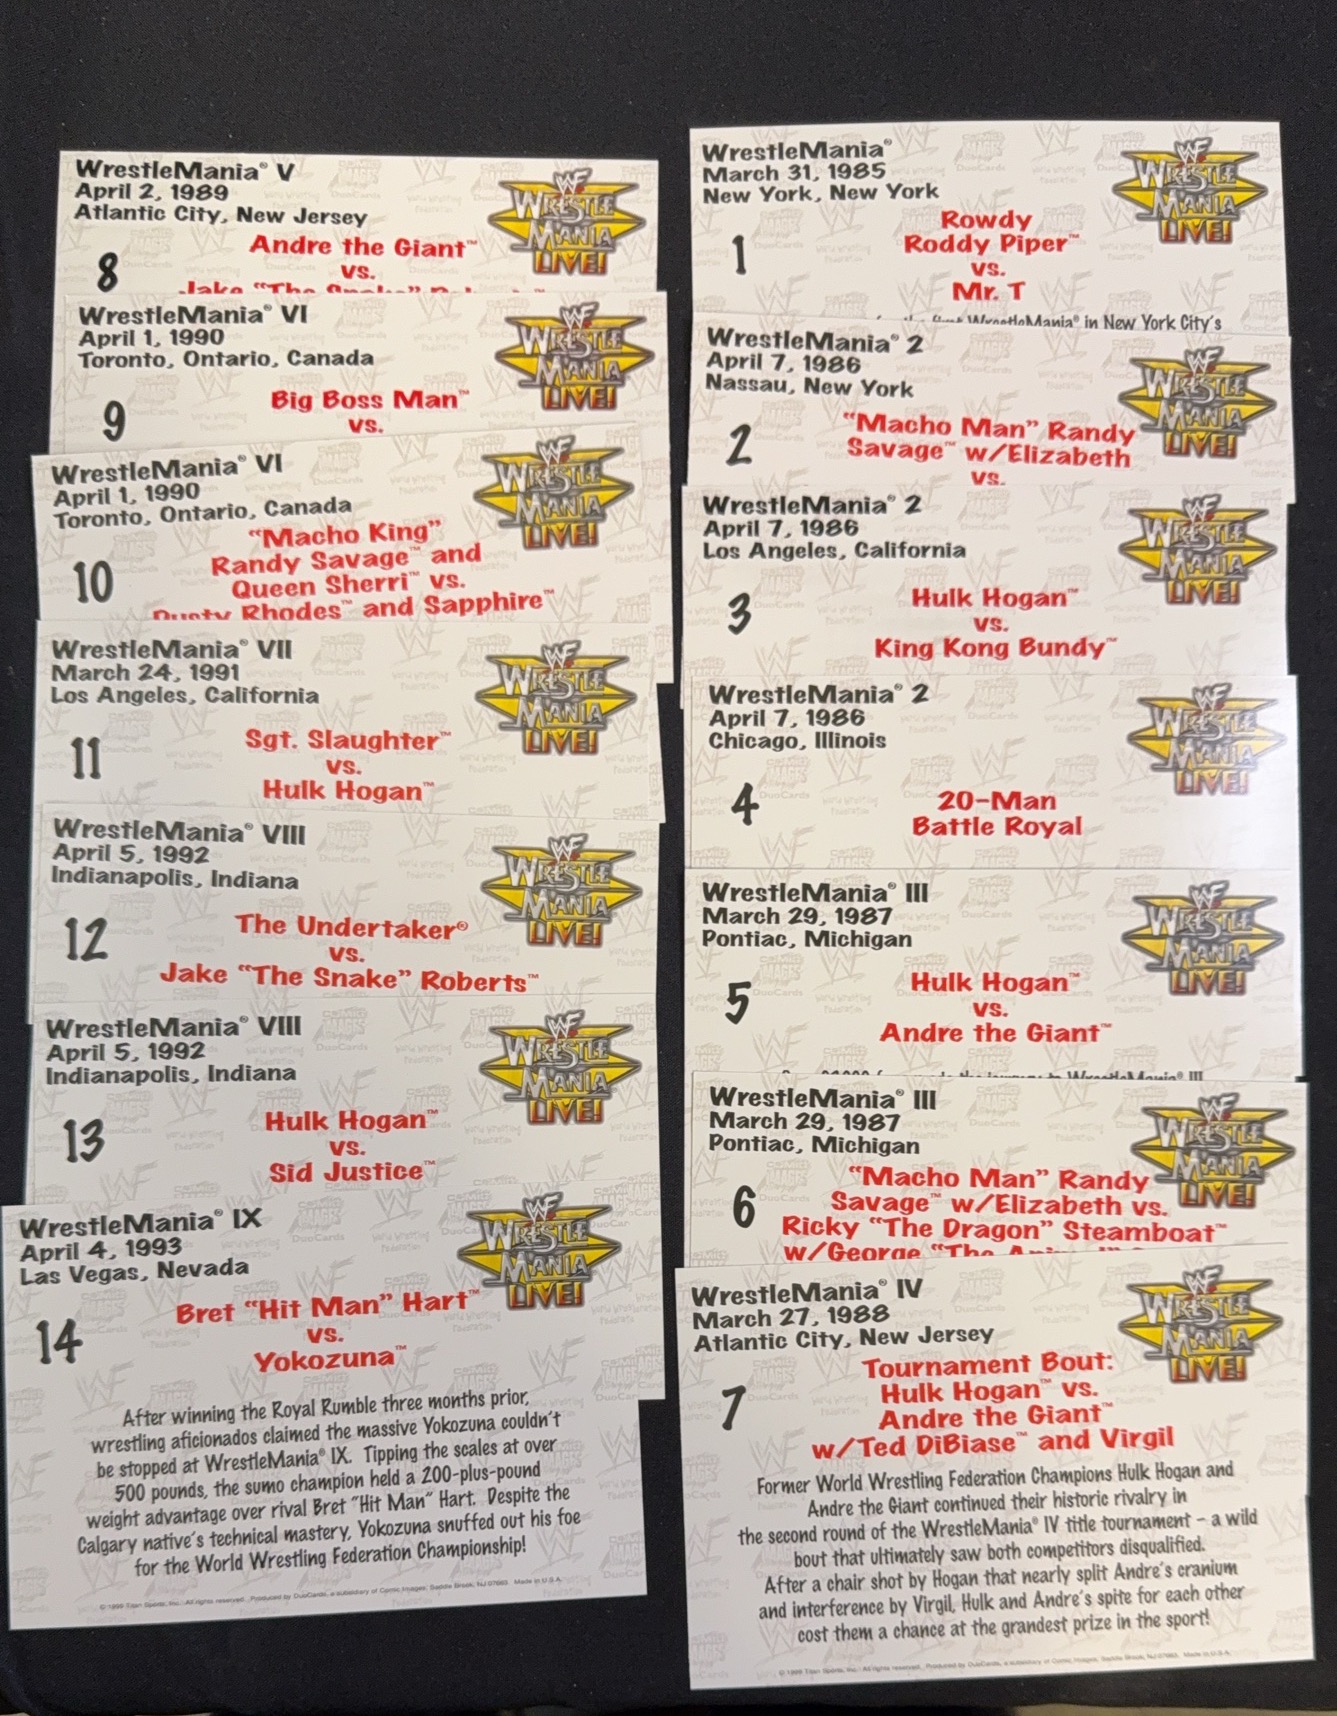 WrestleMania® V
April 2, 1989
Atlantic City, New Jersey
8
Andre the Giant™
vs.
Jake “The
WF
WRESTLE
MANIA
LIVE!
WrestleMania® VI
April 1, 1990
Toronto, Ontario, Canada
9
Big Boss Man™
vs.
WF
WRESTLE
MANIA
LIVE!
WrestleMania® VI
April 1, 1990
Toronto, Ontario, Canada
10
“Macho King”
Randy Savage™ and
Queen Sherri™ vs.
Dusty Rhodes™ and Sapphire™
WF
WRESTLE
MANIA
LIVE!
WrestleMania® VII
March 24, 1991
Los Angeles, California
11
Sgt. Slaughter™
vs.
Hulk Hogan™
WF
WRESTLE
MANIA
LIVE!
WrestleMania® VIII
April 5, 1992
Indianapolis, Indiana
12
The Undertaker®
vs.
Jake “The Snake” Roberts™
WF
WRESTLE
MANIA
LIVE!
WrestleMania® VIII
April 5, 1992
Indianapolis, Indiana
13
Hulk Hogan™
vs.
Sid Justice™
WF
WRESTLE
MANIA
LIVE!
WrestleMania® IX
April 4, 1993
Las Vegas, Nevada
14
Bret “Hit Man” Hart™
vs.
Yokozuna™
WF
WRESTLE
MANIA
LIVE!
After winning the Royal Rumble three months prior,
wrestling aficionados claimed the massive Yokozuna couldn't
be stopped at WrestleMania® IX. Tipping the scales at over
500 pounds, the sumo champion held a 200-plus-pound
weight advantage over rival Bret “Hit Man” Hart. Despite the
Calgary native's technical mastery, Yokozuna snuffed out his foe
for the World Wrestling Federation Championship!
Titan Sports, Inc. All rights reserved. Produced by DuoCards, a subsidiary of Comic Images, Saddle Brook, NJ 07663. Made in U.S.A.
WrestleMania®
March 31, 1985
New York, New York
1
Rowdy
Roddy Piper™
vs.
Mr. T
WrestleMania® in New York City's
WF
WRESTLE
MANIA
LIVE!
WrestleMania® 2
April 7, 1986
Nassau, New York
2
“Macho Man” Randy
Savage™ w/Elizabeth
vs.
WF
WRESTLE
MANIA
LIVE!
WrestleMania® 2
April 7, 1986
Los Angeles, California
3
Hulk Hogan™
vs.
King Kong Bundy™
WF
WRESTLE
MANIA
LIVE!
WrestleMania® 2
April 7, 1986
Chicago, Illinois
4
20-Man
Battle Royal
WF
WRESTLE
MANIA
LIVE!
WrestleMania® III
March 29, 1987
Pontiac, Michigan
5
Hulk Hogan™
vs.
Andre the Giant™
WrestleMania® III
WF
WRESTLE
MANIA
LIVE!
WrestleMania® III
March 29, 1987
Pontiac, Michigan
6
“Macho Man” Randy
Savage™ w/Elizabeth vs.
Ricky “The Dragon” Steamboat™
w/George “The
WF
WRESTLE
MANIA
LIVE!
WrestleMania® IV
March 27, 1988
Atlantic City, New Jersey
7
Tournament Bout:
Hulk Hogan™ vs.
Andre the Giant™
w/Ted DiBiase™ and Virgil
WF
WRESTLE
MANIA
LIVE!
Former World Wrestling Federation Champions Hulk Hogan and
Andre the Giant continued their historic rivalry in
the second round of the WrestleMania® IV title tournament – a wild
bout that ultimately saw both competitors disqualified.
After a chair shot by Hogan that nearly split Andre's cranium
and interference by Virgil, Hulk and Andre's spite for each other
cost them a chance at the grandest prize in the sport!
Titan Sports, Inc. All rights reserved. Produced by DuoCards, a subsidiary of Comic Images, Saddle Brook, NJ 07663. Made in U.S.A.